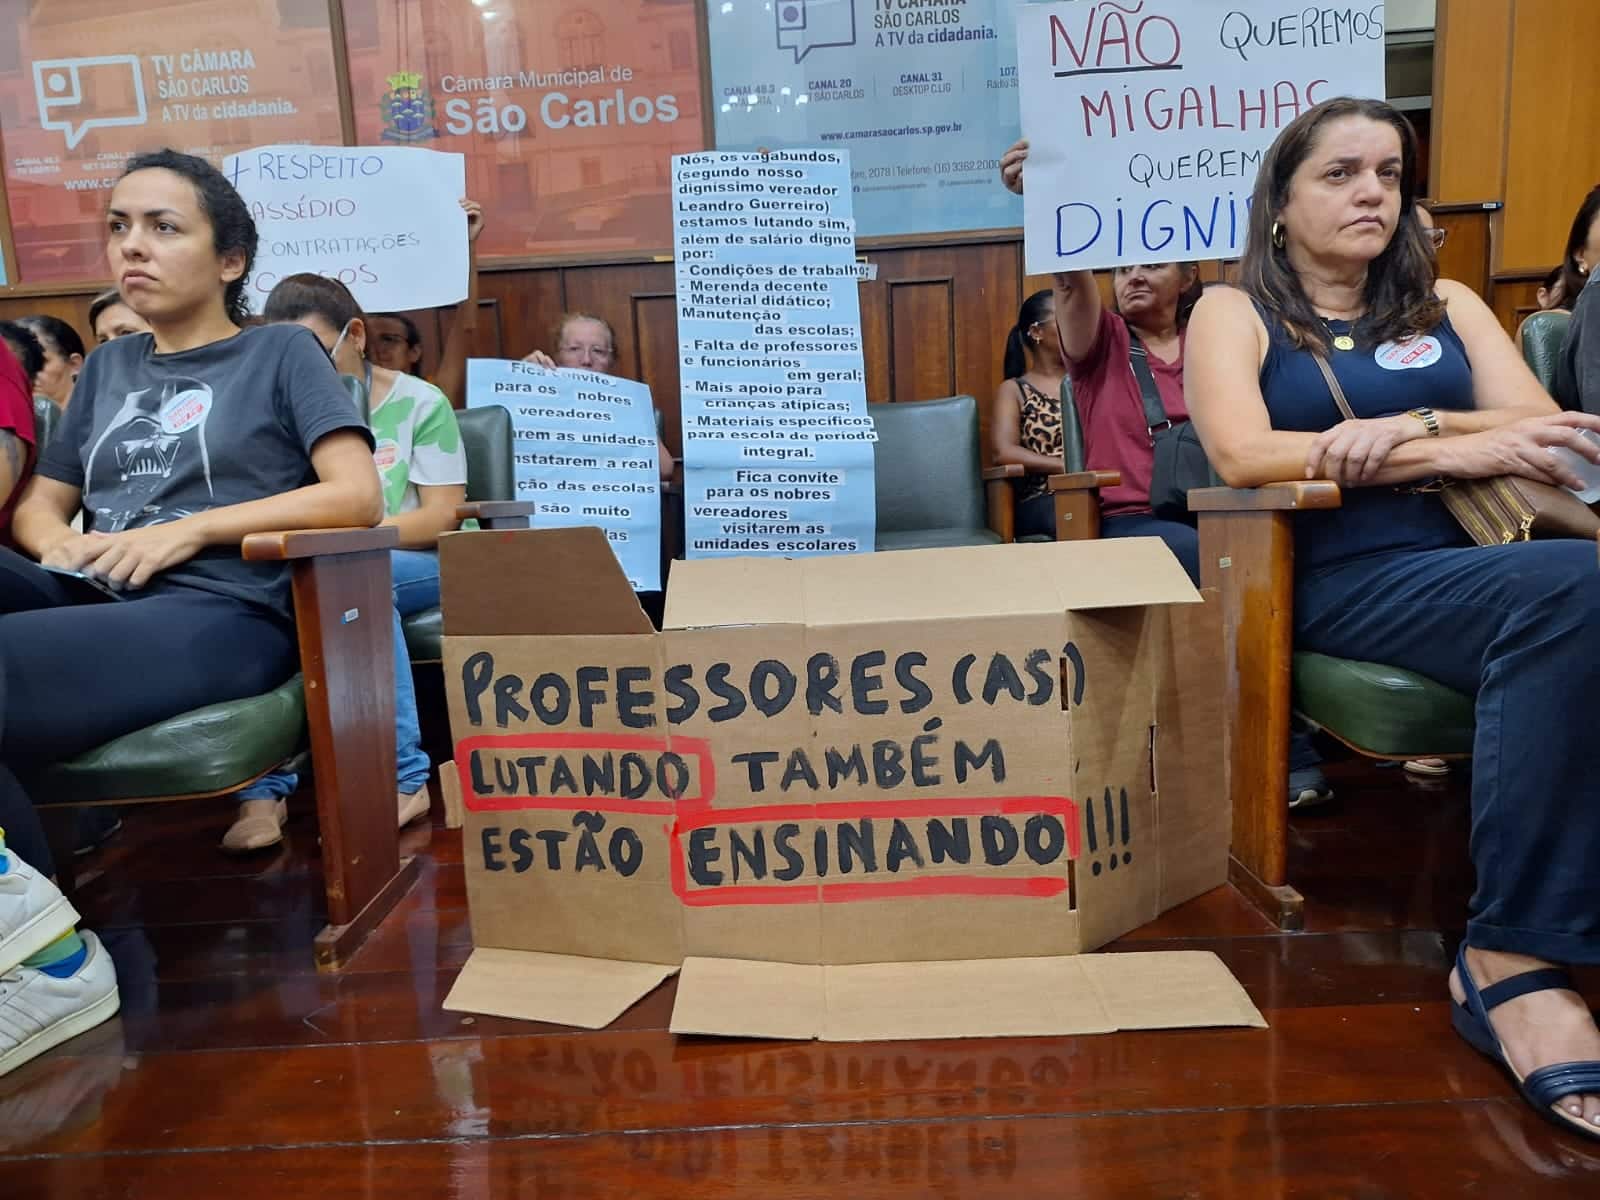 TV CÂMARA
SÃO CARLOS
A TV da cidadania.
Câmara Municipal de
São Carlos
TV CÂMARA
SÃO CARLOS
A TV da cidadania.
CANAL 48.3
CANAL 20
CANAL 31
DESKTOP C.LIG
www.camarasaocarlos.sp.gov.br
2078 | Telefone: (16) 3362.2000
+ RESPEITO
ASSÉDIO
CONTRATAÇÕES
Nós, os vagabundos,
(segundo nosso
digníssimo vereador
Leandro Guerreiro)
estamos lutando sim,
além de salário digno
por:
- Condições de trabalho;
- Merenda decente
- Material didático;
Manutenção
das escolas;
- Falta de professores
e funcionários
em geral;
- Mais apoio para
crianças atípicas;
- Materiais específicos
para escola de período
integral.
Fica convite
para os nobres
vereadores
visitarem as
unidades escolares
Fica convite
para os nobres
vereadores
as unidades
a real
das escolas
são muito
NÃO QUEREMOS
MIGALHAS
QUEREM
DIGNI
PROFESSORES (AS)
LUTANDO TAMBÉM
ESTÃO ENSINANDO!!!